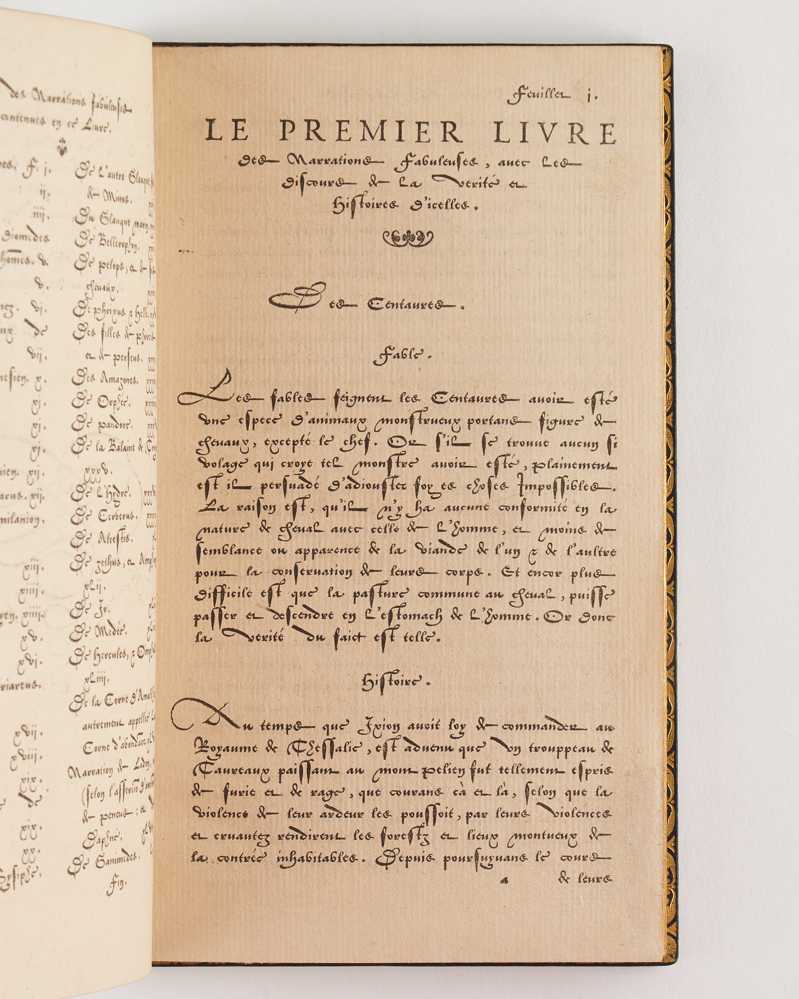 des Narrations fabuleuses
contenues en ce Livre.
F. j.
ij.
iij.
Diomedes
v.
v.
vj.
de
vij.
x.
xj.
xj.
xij.
xij.
xiij.
xiiij.
xiiij.
xv.
xvj.
xvij.
xviij.
xix.
de
xix.
xx.
De l'autre Glauque
& Minos.
Du Glauque
De Bellerophon.
De Pelops, et &
chevaux.
De Phrixus & Hell
Des filles &
et & perseus.
Des Amazones.
De Orphee.
De pandore.
De la Balaine &
xxxv.
De l'Hydre.
De Cerberus.
De Alcestis.
De zethus, et
xlij.
De Jo.
De Medee.
De Hercules,
xliiij.
De la Corne d'Amal
autrement appellée
Corne d'abondance
Narration de
(selon l'assertion
& penens; et
Daphné.
De Ganimedes.
Fin.
Feuillet j.
LE PREMIER LIVRE
des Narrations Fabuleuses, avec les
discours de la verité et
histoires d'icelles.
Des Centaures.
Fable.
Les fables feignent les Centaures avoir esté
une espece d'animaux monstrueux portans figure de
chevaux, excepté le chef. Or s'il se trouve aucun si
volage qui croye tel monstre avoir esté, plainement
est il persuadé d'adiouster foy es choses Impossibles.
La raison est, qu'il n'y ha aucune conformité en la
nature de cheval avec celle de l'homme, et moins de
semblance ou apparence de la viande de l'un & de l'aultre
pour la conservation de leurs corps. Et encor plus
difficile est que la pasture commune au cheval, puisse
passer et descendre en l'estomach de l'homme. Or donc
la verité du faict est telle.
Histoire.
Du temps que Jxion avoit loy de commander au
Royaume de Thessalie, est advenu que un trouppeau de
Taureaux paissant au mont pelien fut tellement espris
de furie et de rage, que courans cà et là, selon que la
violence de leur ardeur les poussoit, par leurs violences
et cruautez rendirent les forestz et lieux montueux de
la contrée inhabitables. Depuis poursuyvans le cours
a de leurs